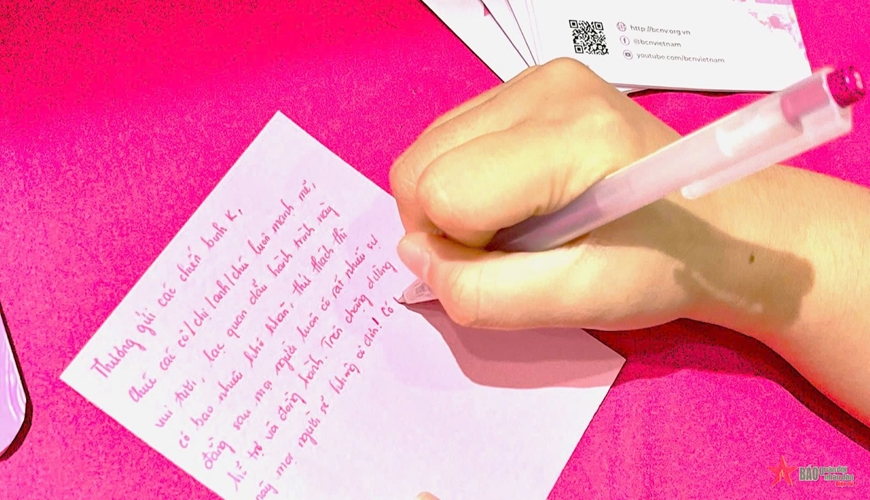 http://bcnv.org.vn
@bcnvietnam
youtube.com/bcnvietnam
Thương gửi các chiến binh K,
Chúc các cô/chị/anh/chú luôn mạnh mẽ,
vui tươi, lạc quan dẫu hành trình này
có bao nhiêu khó khăn, thử thách thì
đằng sau mọi người luôn có rất nhiều sự
hỗ trợ và đồng hành. Trên chặng đường
này mọi người sẽ không cô đơn! Cố
BÁO